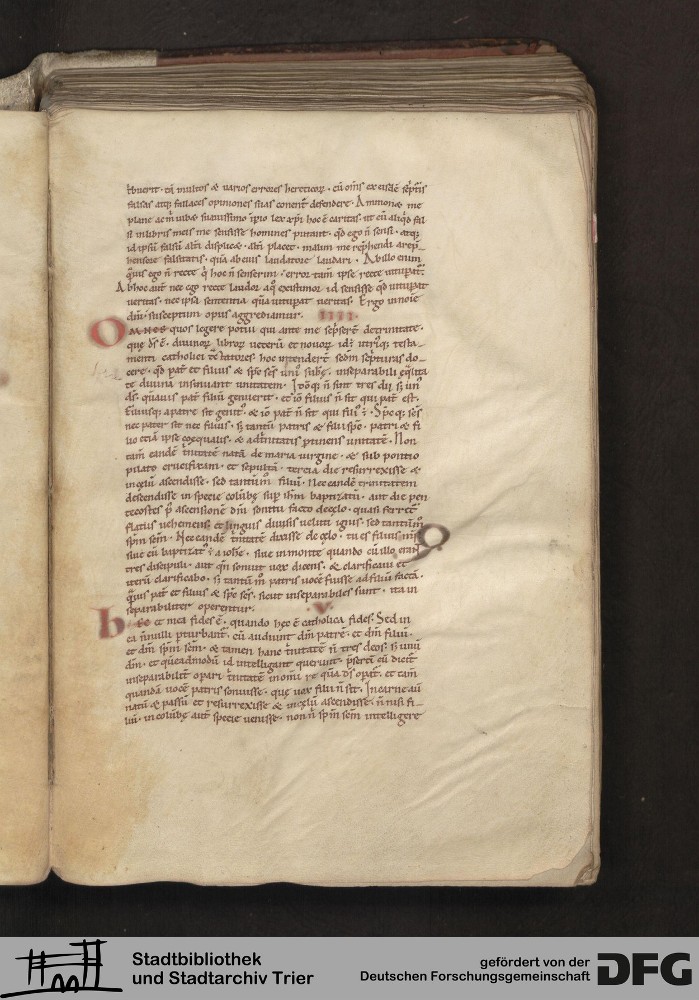 tuerit · cū multos & varios errores hereticoꝝ · cū om̄s ex eisdē scͥptͥs
falsas atq; fallaces opiniones suas conent̄ defendere · Ammonoꝫ me
plane ac m̄ iubꝫ suauissimo īp̄io lex xp̄i hoc ē caritas · ut cū aliqͥd fal
si in libris meis me sensisse homines putant · qd̄ ego n̄ sensi · atq;
id ipsū falsū alt̄i displicꝫ · alt̄i placet · malim me rep̄hendi a rep̄
hensore falsitatis · quā ab eius laudatore laudari · Ab illo enim
qͣuis ego n̄ recte qͥ hoc n̄ senserim · error tam̄ ipse recte uitupat̄·
Ab hoc aut̄ nec ego recte laudor a qͦ existimor id sensisse qd̄ uitupat
ueritas · nec ipsa sententia quā uitupat ueritas · Ergo in noīe
dn̄i · susceptum opus aggrediamur · IIII·
OMNES quos legere potui qui ante me scͥpsert̄ de trinitate·
quę d̄s ē · diuinoꝝ libroꝝ ueterū et nouoꝝ · idꝫ utriq; testa
menti catholici tͣctatores hoc intendert̄ scd̄m scͥpturas do
cere · qd̄ pat̄ et filius & sp̄c sc̄s unī subꝫ · inseparabili eqͣlita
te diuinā insinuant unitatem · Ideoq; n̄ sint tres dii sꝫ unꝰ
d̄s · qͣuis pat̄ filiū genuerit · et iō filius n̄ sit qui pat̄ est·
filiusq; a patre sit genitꝰ · & iō pat̄ n̄ sit qui filiꝰ ē · Sp̄cq; sc̄s
nec pater sit nec filius · sꝫ tantū patris & filii sp̄c · patri & fi
lio etiā ipse coequalis · & ad tͥnitatis ptinens unitatē · Non
tam̄ eandē tͥnitatē natā de maria uirgine · & sub pontio
pilato crucifixam · et sepultā · tercia die resurrexisse &
in cęlū ascendisse · sed tantūm filiū · Nec eandē trinitatem
descendisse in specie colūbę sup ihm̄ baptizatū · aut die pen
tecostes p̄ ascensionē dn̄i sonitu facto de cęlo · quasi ferret̄
flatus uehemens · et linguis diuisis ueluti ignis · sed tantūm
sp̄m sc̄m · Nec eandē tͥnitatē dixisse de cęlo · tu es filius ms̄
siue cū baptizatꝰ ē a ioh̄e · siue in monte quando cū illo erant
tres discipuli · aut qn̄ sonuit uox dicens · & clarificaui et
iterū clarificabo · sꝫ tantū m̄ patris uocē fuisse ad filiū factā·
qͣuis pat̄ et filius & sp̄c sc̄s · sicut inseparabiles sunt · ita in
separabiliter operentur· ·V·
hęc et mea fides ē · quando hęc ē catholica fides· Sed in
ea n̄nulli pturbant̄ · cū audiunt dm̄ patrē · et dm̄ filiū·
et dm̄ sp̄m sc̄m · & tamen hanc tͥnitatē n̄ tres deos · sꝫ unū
dm̄ · et queadmodū id intelligant querunt · p̄sertī cū dicit̄
inseparabilit̄ opari tͥnitatē in om̄i re quā d̄s opat̄ · et tam̄
quandā uocē patris sonuisse · quę uox filii n̄ sit · In carne aū
natū & passū et resurrexisse & in cęlū ascendisse · n̄ nisi fi
liū · in colūbę aut̄ specie uenisse · non n̄ sp̄m sc̄m intelligere
Stadtbibliothek
und Stadtarchiv Trier
gefördert von der
Deutschen Forschungsgemeinschaft
DFG